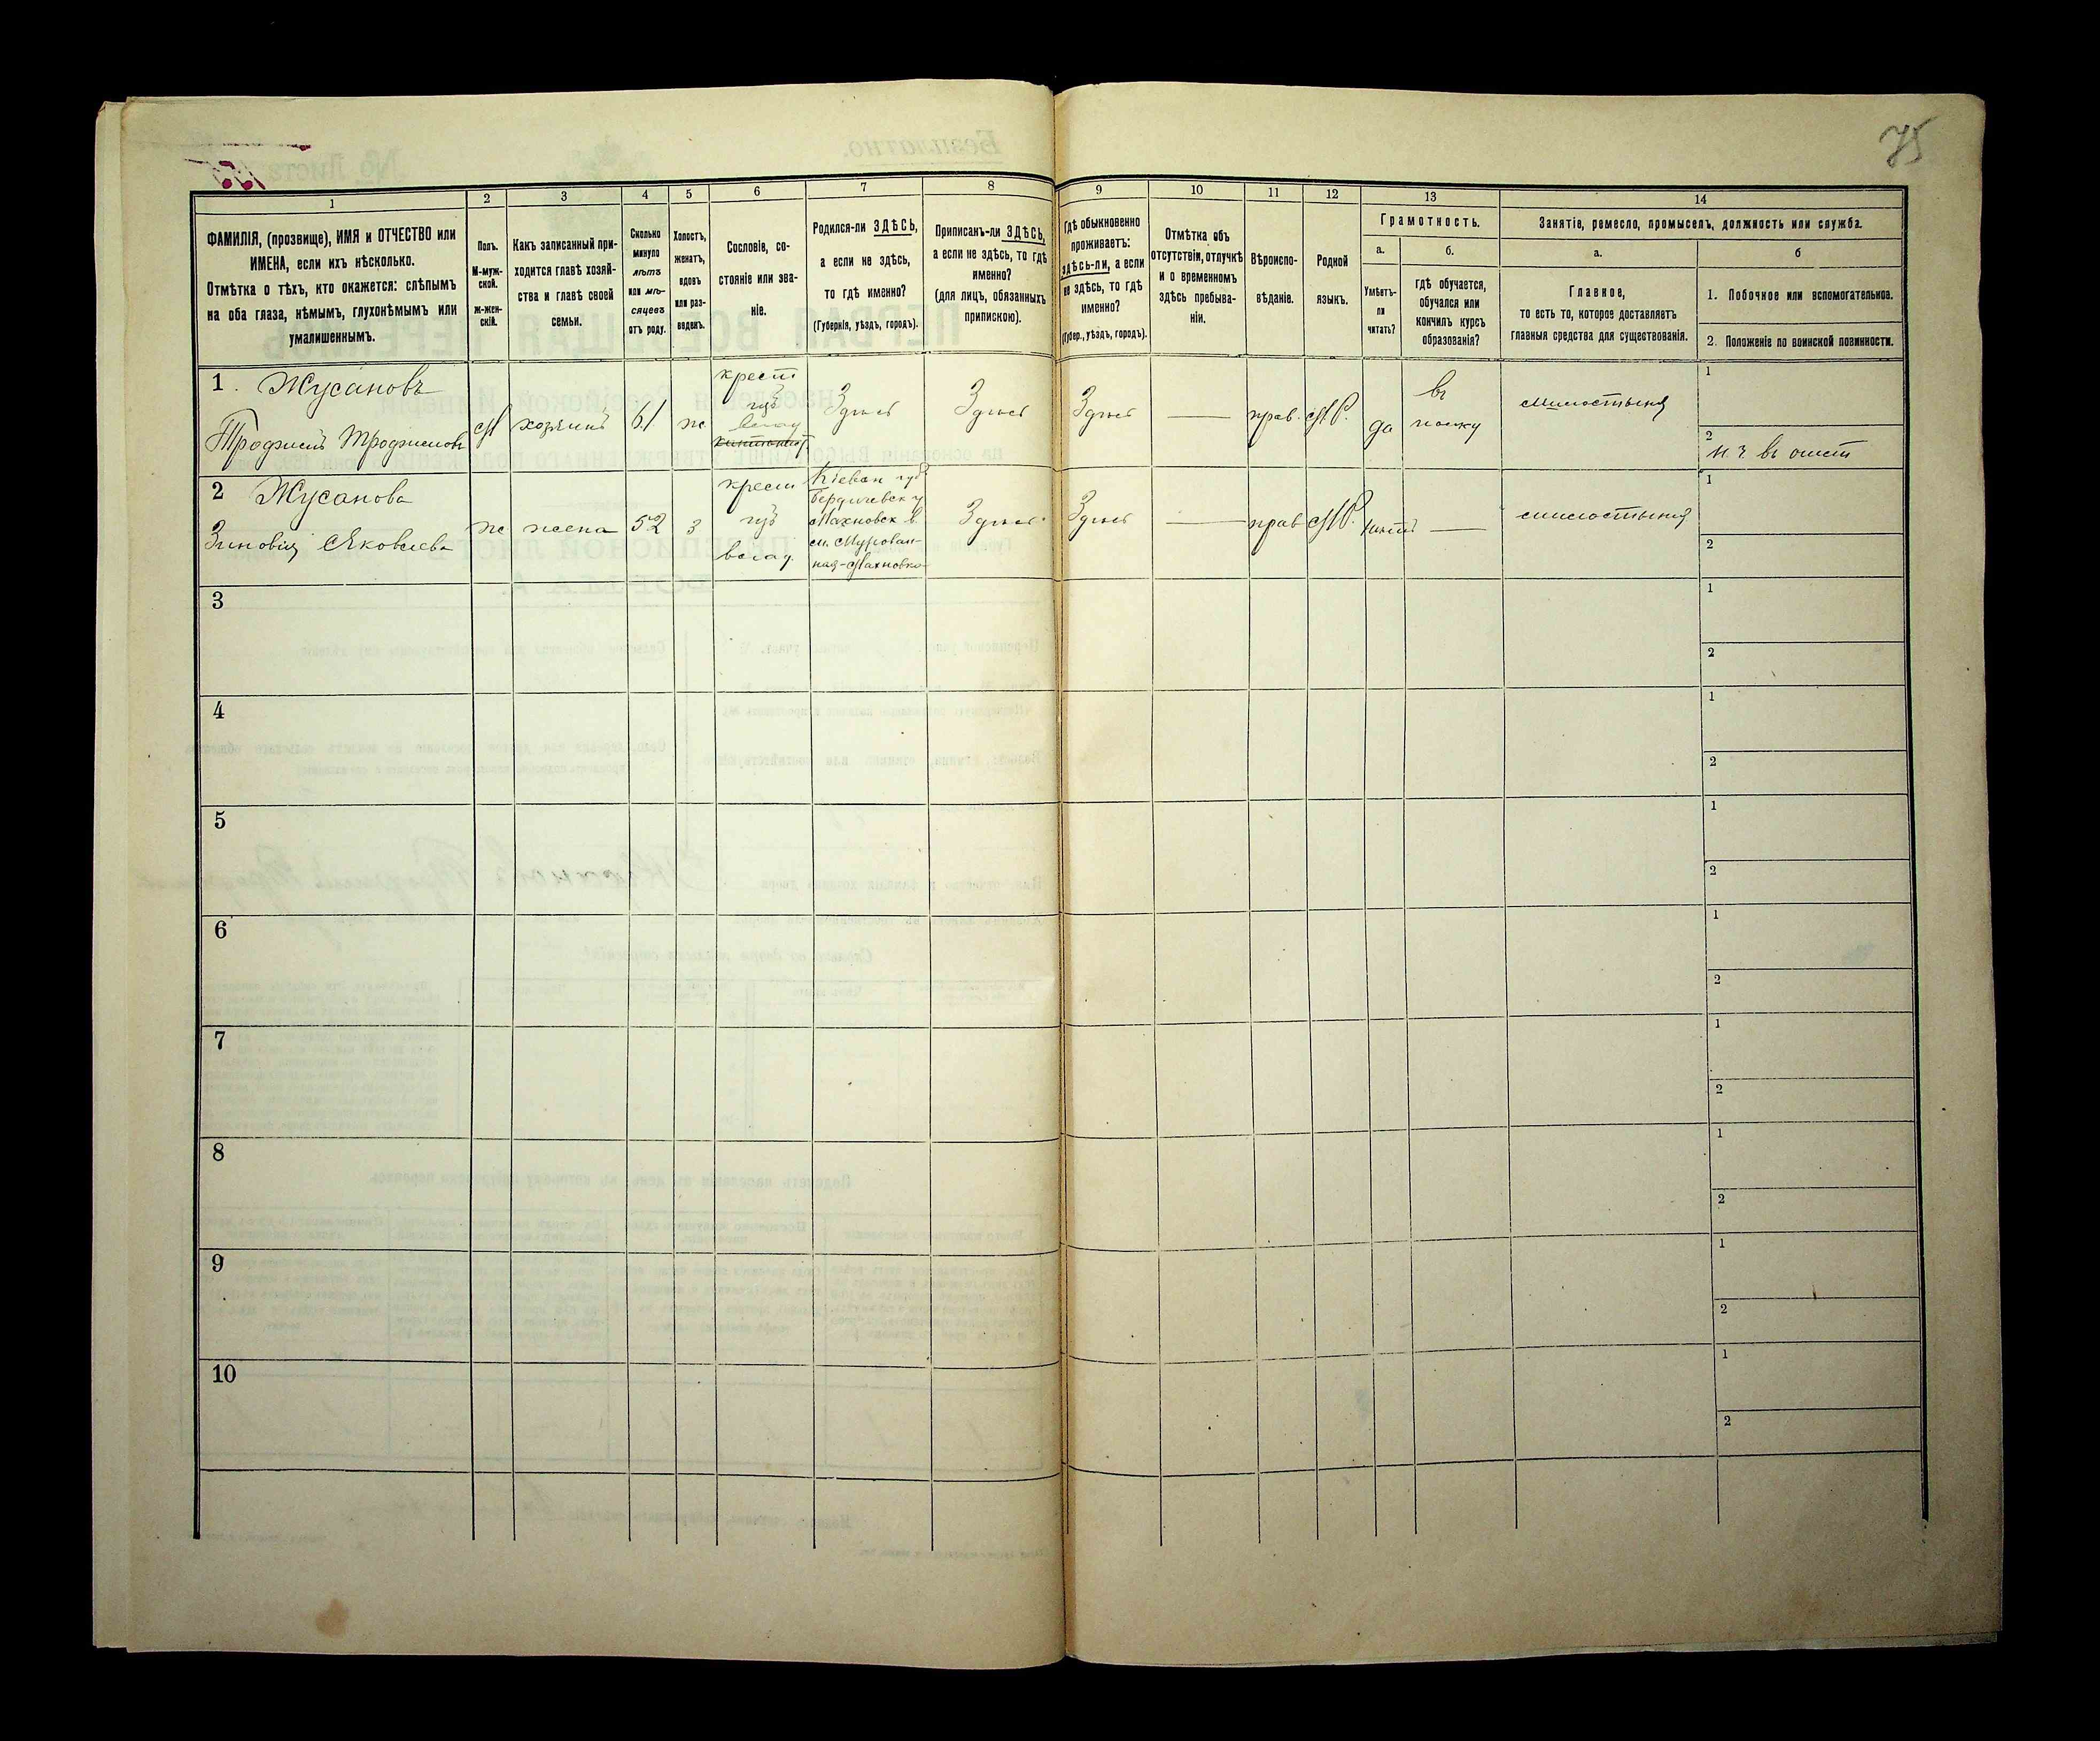 75
1
2
3
4
5
6
7
8
9
10
11
12
13
14
ФАМИЛІЯ, (прозвище), ИМЯ и ОТЧЕСТВО или
ИМЕНА, если ихъ нѣсколько.
Отмѣтка о тѣхъ, кто окажется: слѣпымъ
на оба глаза, нѣмымъ, глухонѣмымъ или
умалишеннымъ.
Полъ.
М-муж-
ской.
ж-жен-
скій.
Какъ записанный при-
ходится главѣ хозяй-
ства и главѣ своей
семьи.
Сколько
минуло
лѣтъ
или мѣ-
сяцевъ
отъ роду.
Холостъ,
женатъ,
вдовъ
или раз-
веденъ.
Сословіе, со-
стояніе или зва-
ніе.
Родился-ли ЗДѢСЬ,
а если не здѣсь,
то гдѣ именно?
(Губернія, уѣздъ, городъ).
Приписанъ-ли ЗДѢСЬ,
а если не здѣсь, то гдѣ
именно?
(для лицъ, обязанныхъ
припискою).
Гдѣ обыкновенно
проживаетъ:
здѣсь-ли, а если
не здѣсь, то гдѣ
именно?
(Губер., уѣздъ, городъ).
Отмѣтка объ
отсутствіи, отлучкѣ
и о временномъ
здѣсь пребыва-
ніи.
Вѣроиспо-
вѣданіе.
Родной
языкъ.
Грамотность.
а.
Умѣетъ-
ли
читать?
б.
гдѣ обучается,
обучался или
кончилъ курсъ
образованія?
Занятіе, ремесло, промыселъ, должность или служба.
а.
Главное,
то есть то, которое доставляетъ
главныя средства для существованія.
б
1. Побочное или вспомогательное.
2. Положеніе по воинской повинности.
1. Жусановъ
М
хозяинъ
61
ж
крест
изъ
влад
Здѣсь
Здѣсь
Здѣсь
—
прав.
МР.
да
въ
полку
милостыня
1
2
н ч въ отст
2 Жусанова
Зиновія Яковлева
ж
жена
52
з
крест
изъ
влад.
Кіевск губ
Бердичевск у
Махновск в.
с. Мурован-
ная-Махновка
Здѣсь
Здѣсь
—
прав
МР.
нѣтъ
—
милостыня
1
2
3
1
2
4
1
2
5
1
2
6
1
2
7
1
2
8
1
2
9
1
2
10
1
2